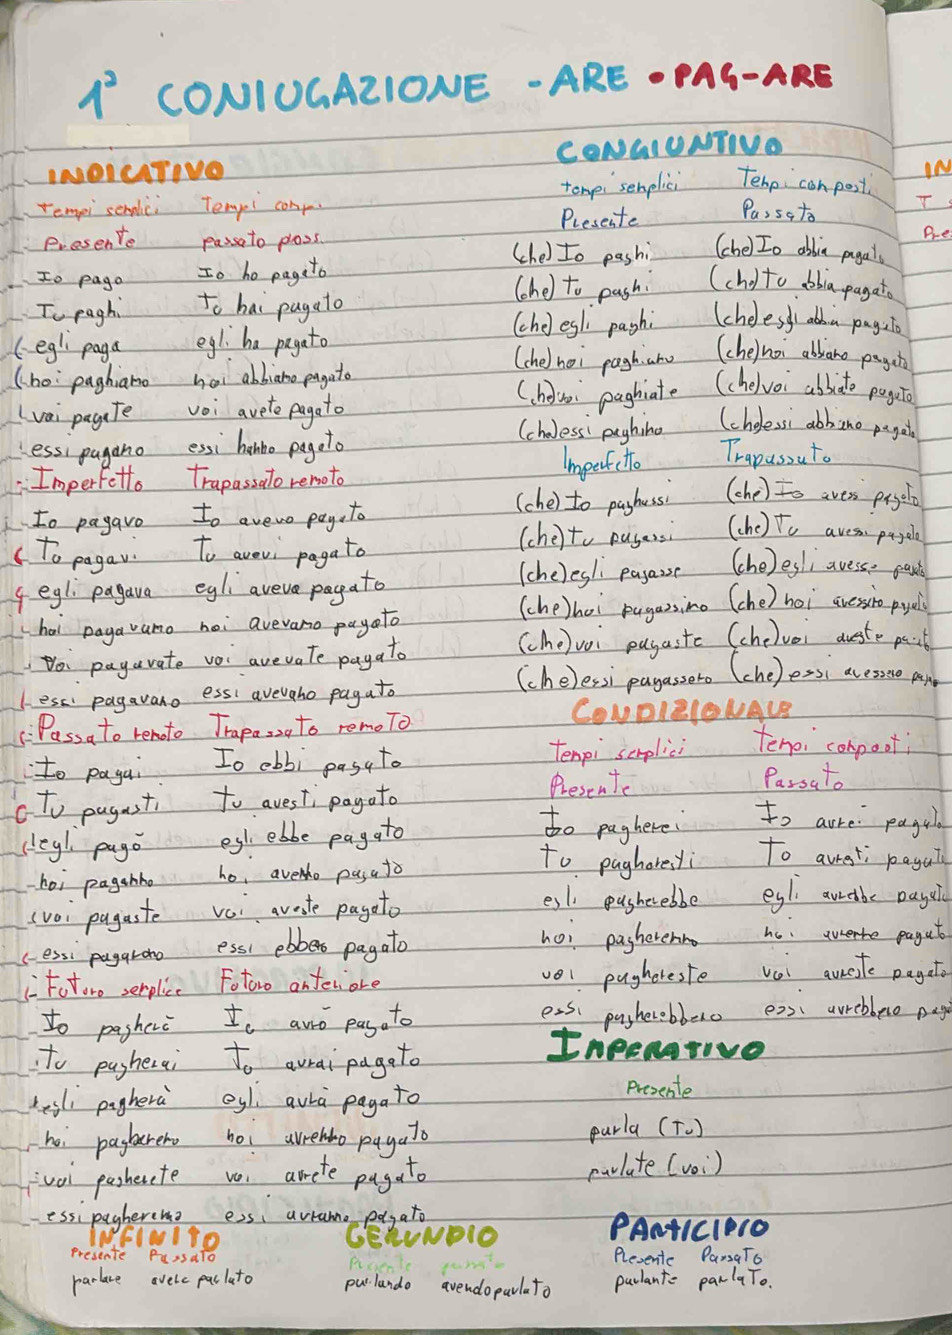 1ª CONIUGAZIONE - ARE • PAG-ARE
INDICATIVO
Tempi semplici Tempi comp.
Presente passato pross.
Io pago Io ho pagato
Tu paghi Tu hai pagato
egli paga egli ha pagato
noi paghiamo noi abbiamo pagato
voi pagate voi avete pagato
essi pagano essi hanno pagato
Imperfetto Trapassato remoto
Io pagavo Io avevo pagato
Tu pagavi Tu avevi pagato
egli pagava egli aveva pagato
noi pagavamo noi avevamo pagato
voi pagavate voi avevate pagato
essi pagavano essi avevano pagato
Passato remoto Trapassato remoto
Io pagai Io ebbi pagato
Tu pagasti tu avesti pagato
egli pagò egli ebbe pagato
noi pagammo noi avemmo pagato
voi pagaste voi aveste pagato
essi pagarono essi ebbero pagato
Futuro semplice Futuro anteriore
Io pagherò Io avrò pagato
tu pagherai Tu avrai pagato
egli pagherà egli avrà pagato
noi pagheremo noi avremmo pagato
voi pagherete voi avrete pagato
essi essi avranno pagato
CONGIUNTIVO
tempi semplici Tempi composti
Presente Passato
(che) Io paghi (che) Io abbia pagato
(che) tu paghi (che) tu abbia pagato
(che) egli paghi (che) egli abbia pagato
(che) noi paghiamo (che) noi abbiamo pagato
(che) voi paghiate (che) voi abbiate pagato
(che) essi paghino (che) essi abbiano pagato
Imperfetto Trapassato
(che) Io paghassi (che) Io avessi pagato
(che) tu pagassi (che) Tu avessi pagato
(che) egli pagasse (che) egli avesse pagato
(che) noi pagassimo (che) noi avessimo pagato
(che) voi pagaste (che) voi aveste pagato
(che) essi pagassero (che) essi avessero
CONDIZIONALE
Tempi semplici Tempi composti
Presente Passato
Io pagherei Io avrei pagato
Tu pagheresti Tu avresti pagato
egli pagherebbe egli avrebbe pagato
noi pagheremmo noi avremmo pagato
voi paghereste voi avreste pagato
essi pagherebbero essi avrebbero
IMPERATIVO
Presente
parla (Tu)
parlate (voi)
INFINITO
Presente Passato
parlare avere parlato
GERUNDIO
Presente passato
parlando avendo parlato
PARTICIPIO
Presente Passato
parlante parlaTo.
IN